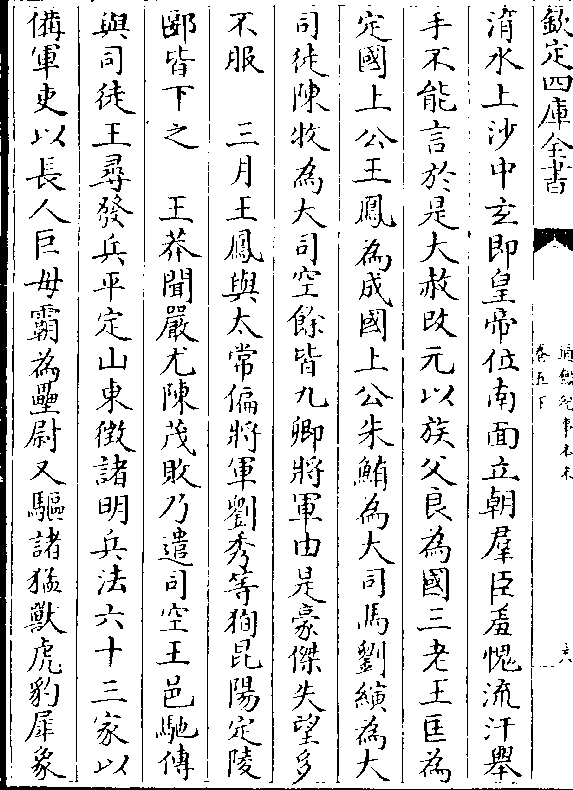 欽定四庫全書
通鑑紀事本末
卷五下
六
淯水上沙中玄即皇帝位南面立朝羣臣羞愧流汗舉
手不能言於是大赦改元以族父良為國三老王匡為
定國上公王鳳為成國上公朱鮪為大司馬劉縯為大
司徒陳牧為大司空餘皆九卿將軍由是豪傑失望多
不服　三月王鳳與太常偏將軍劉秀等狥昆陽定陵
郾皆下之　王莽聞嚴尤陳茂敗乃遣司空王邑馳傳
與司徒王尋發兵平定山東徵諸明兵法六十三家以
備軍吏以長人巨毋霸為壘尉又驅諸猛獸虎豹犀象